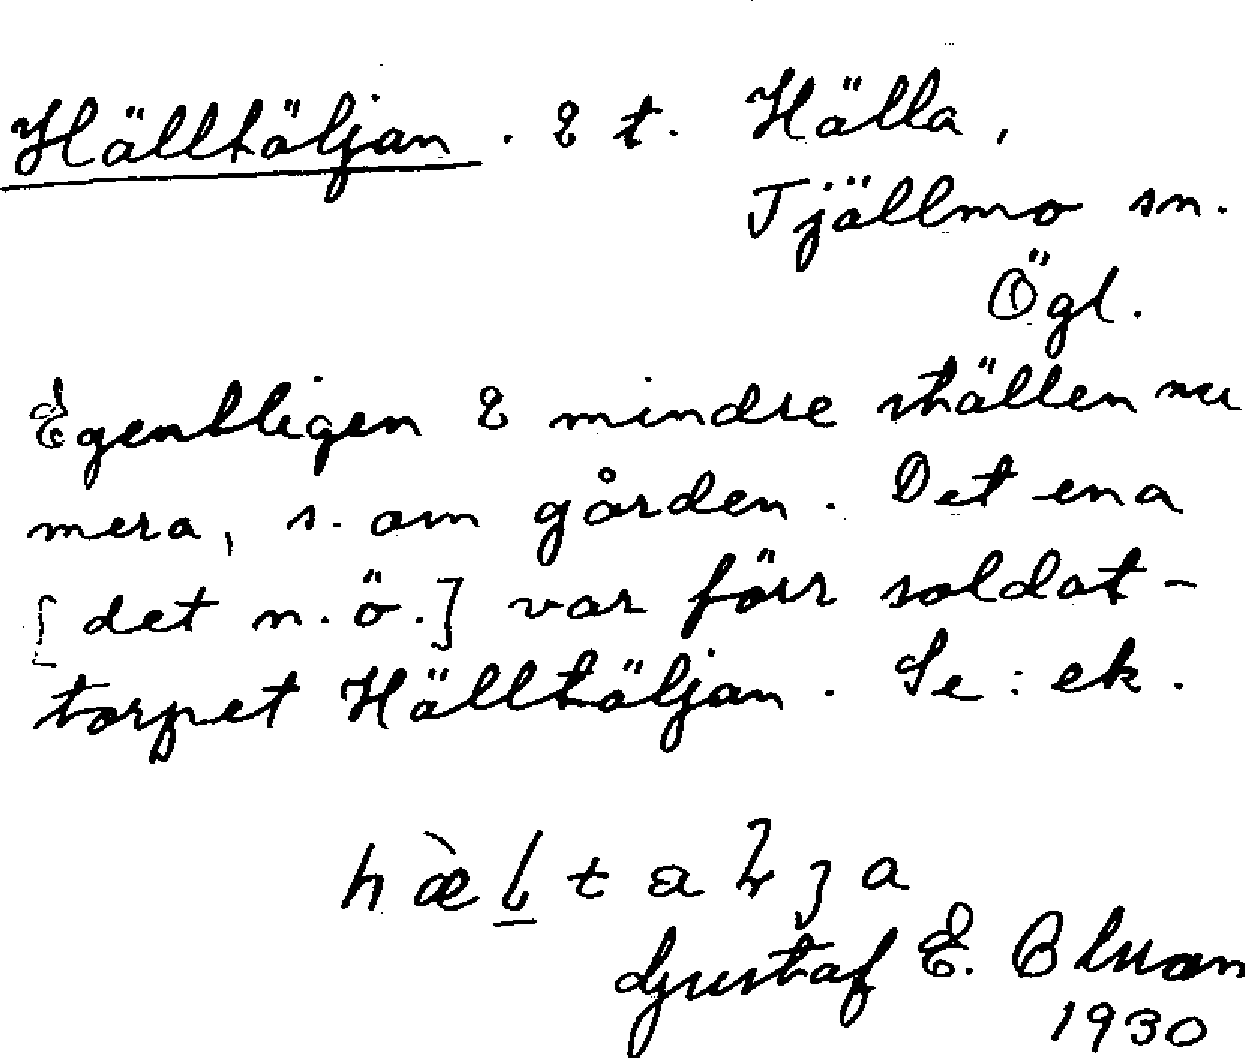 Hälltäljan. 2 t. Hälla,
Tjällmo sn.
Ögl.
Egentligen 2 mindre ställen nu
mera, s. om gården. Det ena
[det n. ö.] var förr soldat-
torpet Hälltäljan. Se: ek.
Gustaf E. Bluan
1930